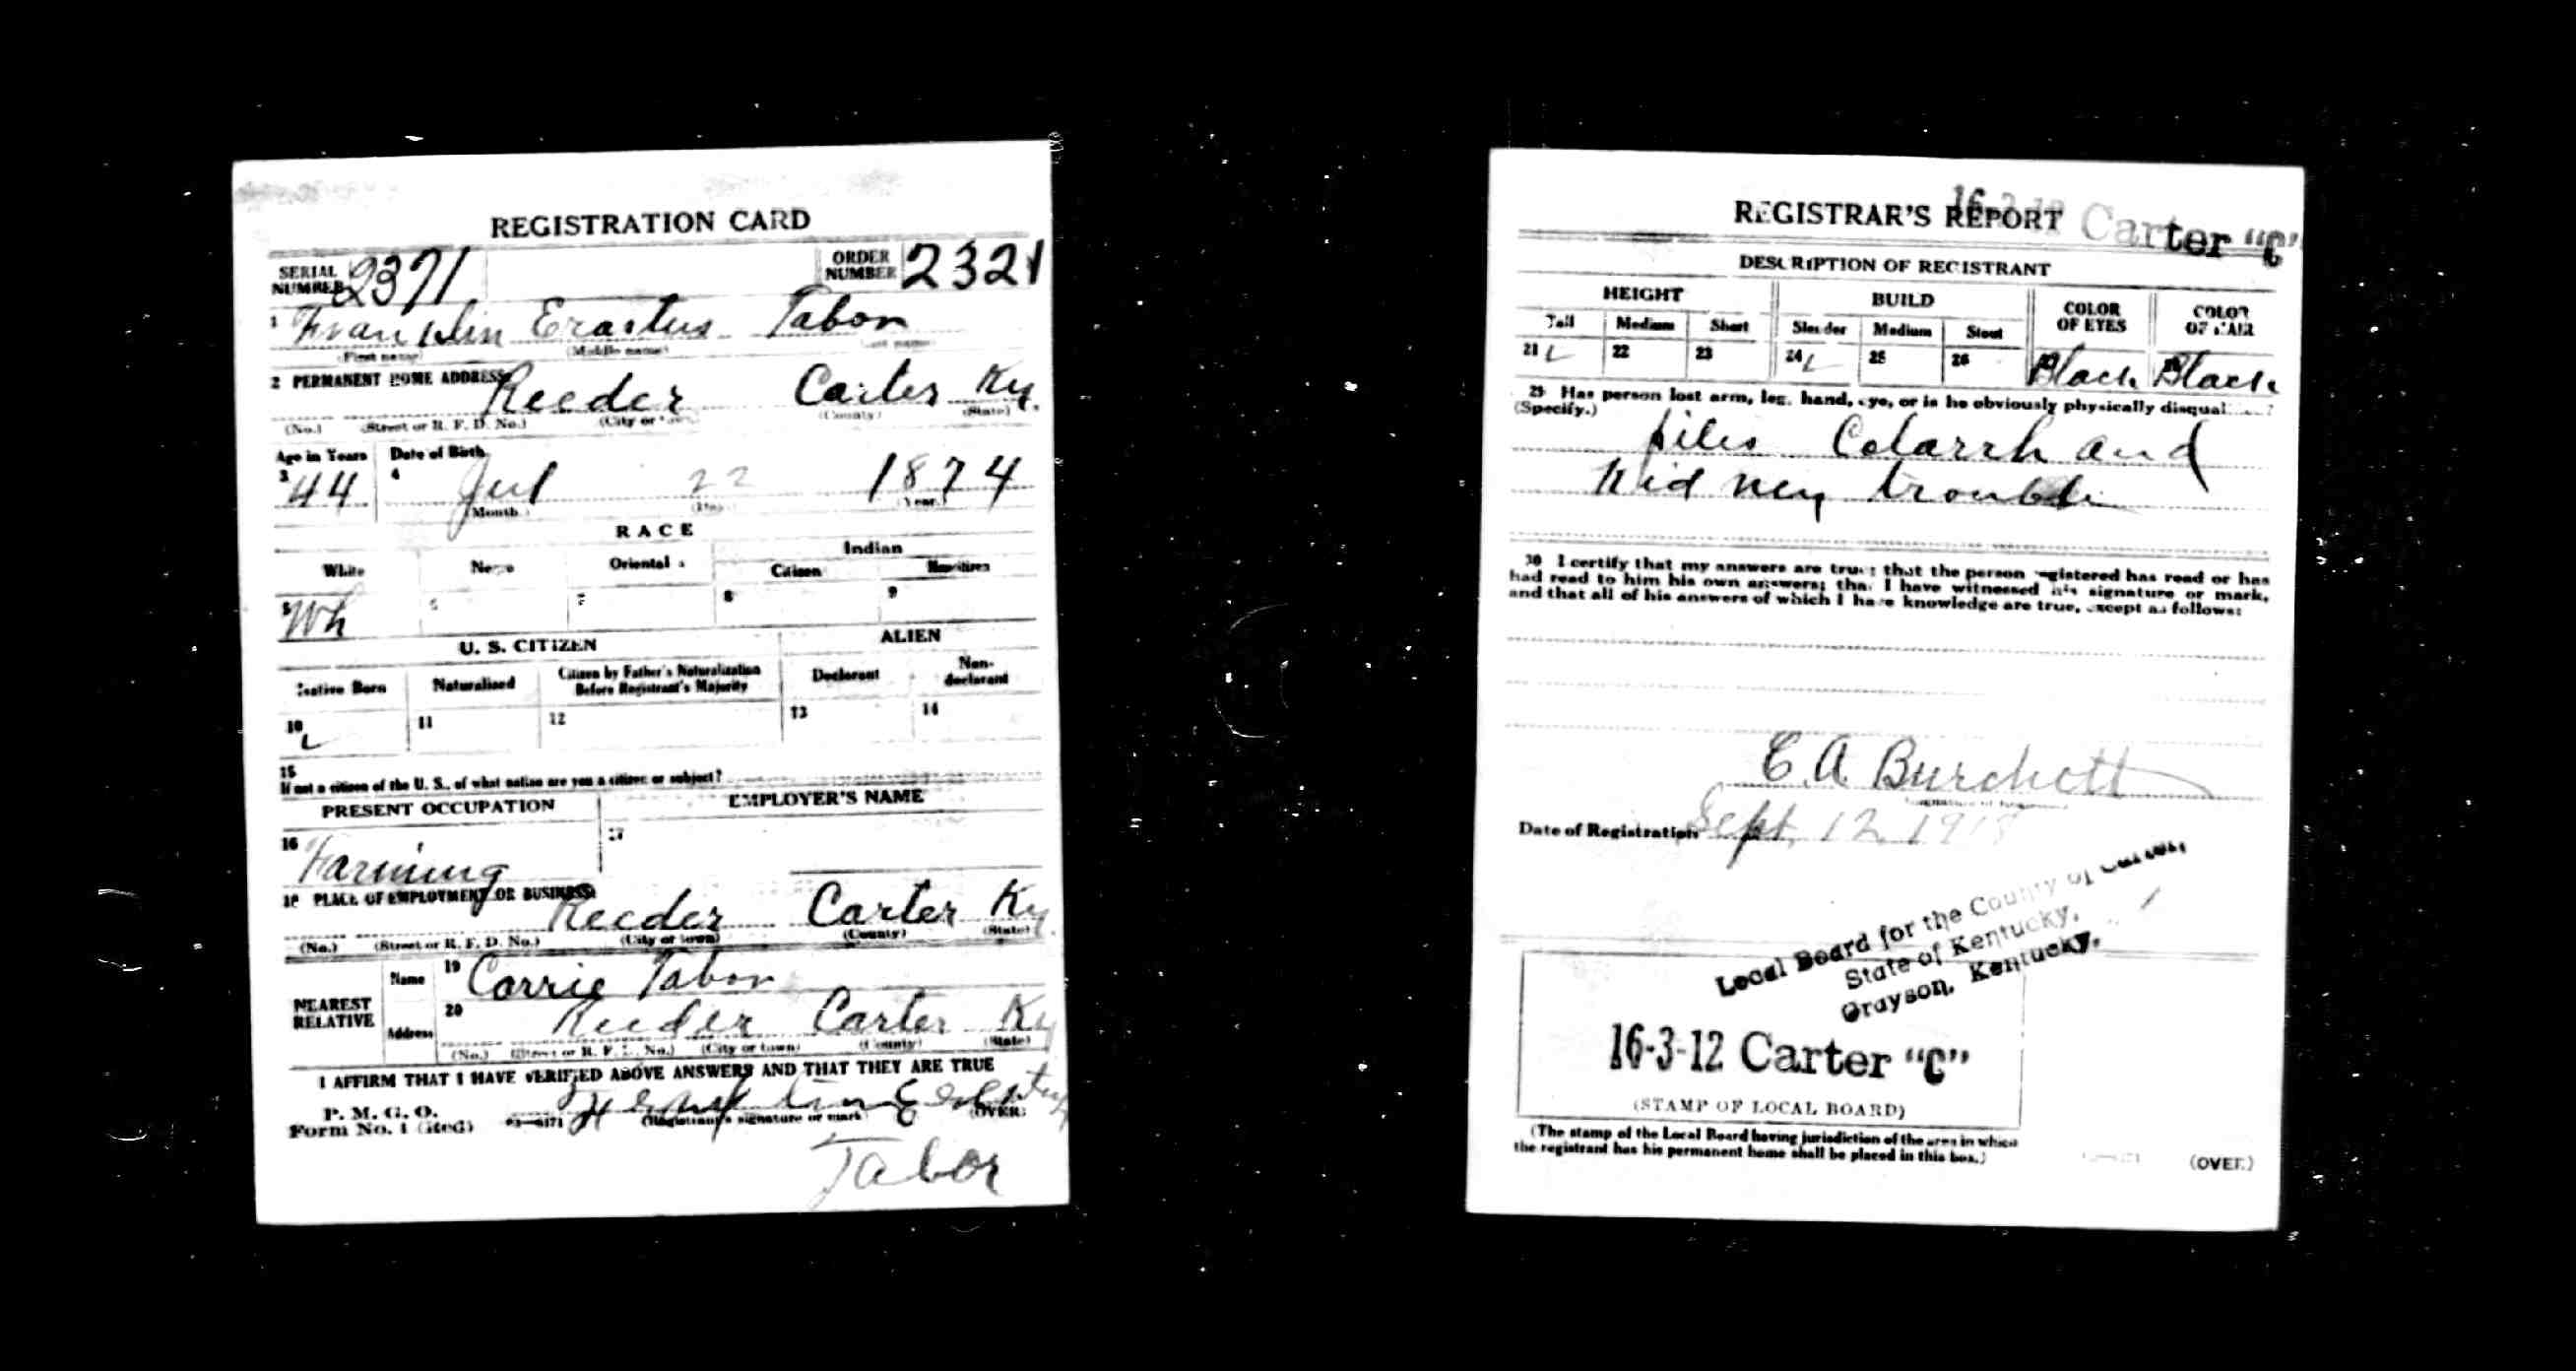 REGISTRATION CARD
SERIAL NUMBER 2371 ORDER NUMBER 2321
1 Franklin Erastus Tabor
(First name) (Middle name) (Last name)
2 PERMANENT HOME ADDRESS: Reeder Carter Ky.
(No.) (Street or R. F. D. No.) (City or town) (County) (State)
Age in Years Date of Birth
3 44 4 Jul 22 1874
(Month.) (Day.) (Year.)
RACE
White Negro Oriental Indian
Citizen Noncitizen
5 Wh 6 7 8 9
U. S. CITIZEN ALIEN
Native Born Naturalized Citizen by Father's Naturalization Before Registrant's Majority Declarant Non-declarant
10 11 12 13 14
15
If not a citizen of the U. S., of what nation are you a citizen or subject?
PRESENT OCCUPATION EMPLOYER'S NAME
16 Farming 17
18 PLACE OF EMPLOYMENT OR BUSINESS: Reeder Carter Ky
(No.) (Street or R. F. D. No.) (City or town) (County) (State)
NEAREST RELATIVE
Name 19 Carrie Tabor
Address 20 Reeder Carter Ky
(No.) (Street or R. F. D. No.) (City or town) (County) (State)
I AFFIRM THAT I HAVE VERIFIED ABOVE ANSWERS AND THAT THEY ARE TRUE
P. M. G. O.
Form No. 1 (Red) 03—6171 (Registrant's signature or mark) (OVER)
Tabor
REGISTRAR'S REPORT
16-3-12 Carter "C"
DESCRIPTION OF REGISTRANT
HEIGHT BUILD COLOR OF EYES COLOR OF HAIR
Tall Medium Short Slender Medium Stout
21 22 23 24 25 26 Black Black
29 Has person lost arm, leg, hand, eye, or is he obviously physically disqualified?
(Specify.)
piles Catarrh and
Kidney trouble
30 I certify that my answers are true; that the person registered has read or has
had read to him his own answers; that I have witnessed his signature or mark,
and that all of his answers of which I have knowledge are true, except as follows:
C. A. Burchett
Date of Registration Sept. 12, 1918
Local Board for the County of Carter,
State of Kentucky,
Grayson, Kentucky.
16-3-12 Carter "C"
(STAMP OF LOCAL BOARD)
(The stamp of the Local Board having jurisdiction of the area in which
the registrant has his permanent home shall be placed in this box.)
(OVER)